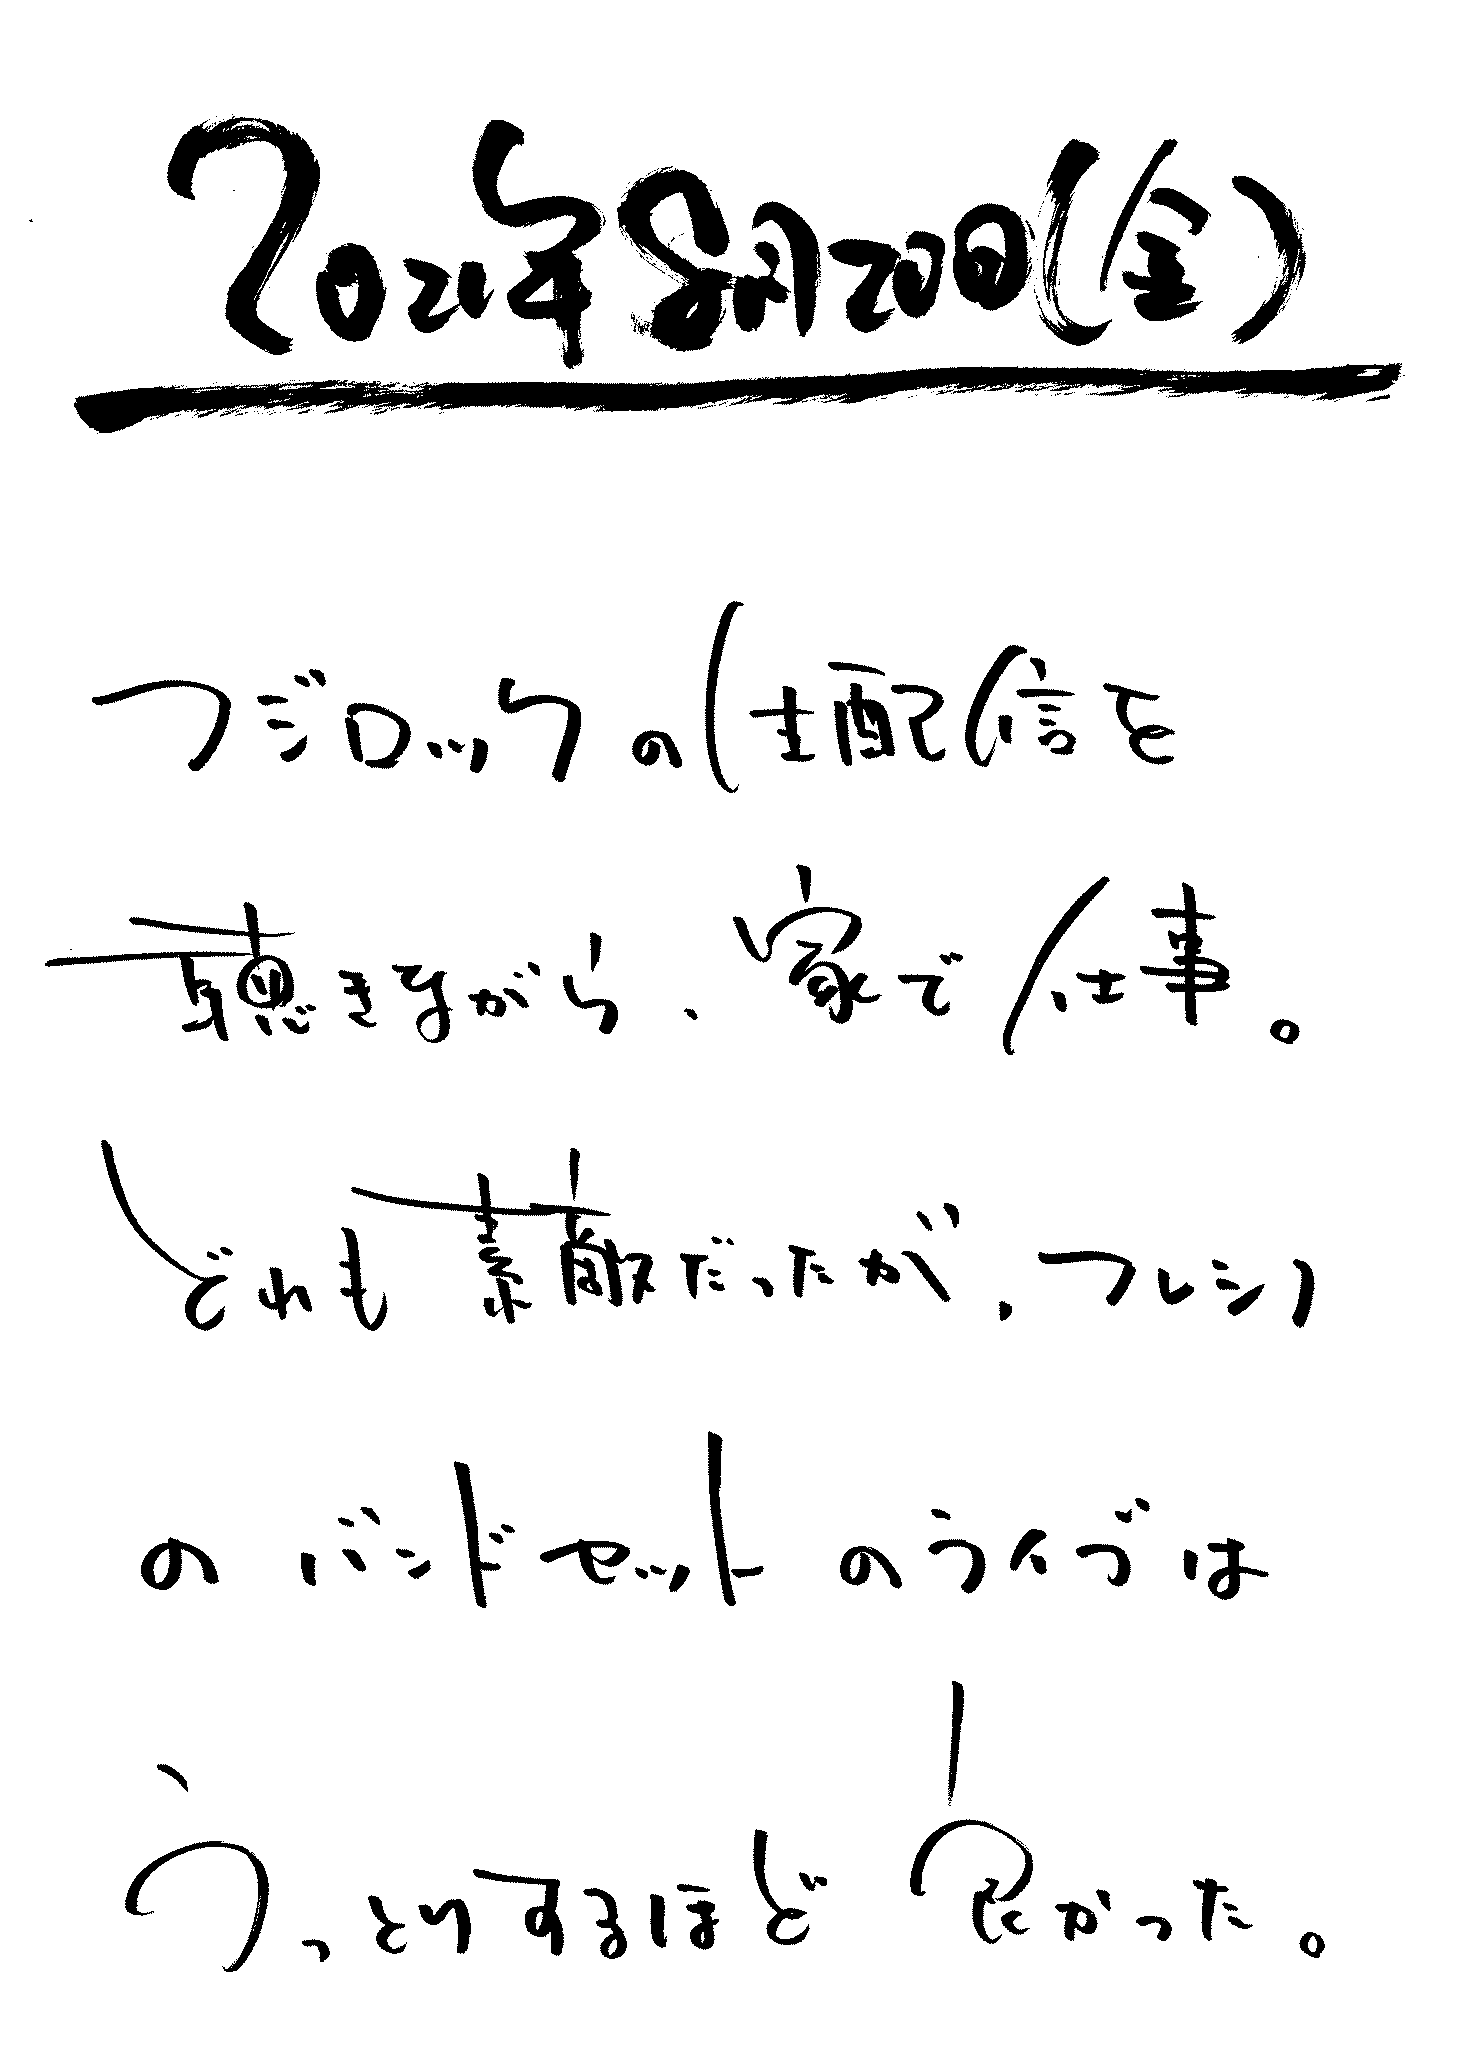 2021年8月20日(金)
フジロックの生配信を
聴きながら、家で仕事。
どれも素敵だったが、フレシノ
のバンドセットのライブは
うっとりするほど良かった。